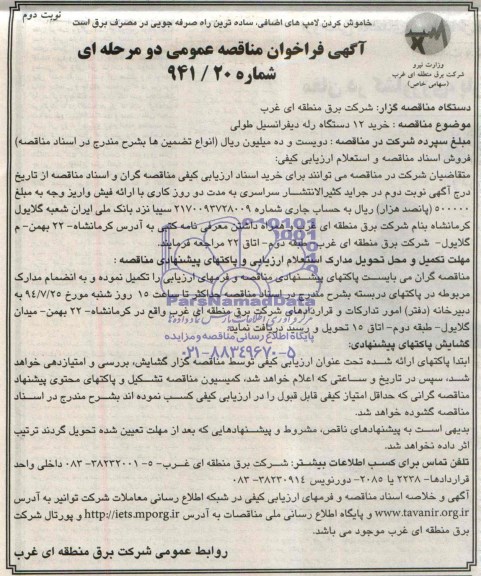 نوبت دوم
خاموش کردن لامپ های اضافی، ساده ترین راه صرفه جویی در مصرف برق است
آگهی فراخوان مناقصه عمومی دو مرحله ای
شماره ۲۰ / ۹۴۱
وزارت نیرو
شرکت برق منطقه ای غرب
(سهامی خاص)
دستگاه مناقصه گزار: شرکت برق منطقه ای غرب
موضوع مناقصه : خرید ۱۲ دستگاه رله دیفرانسیل طولی
مبلغ سپرده شرکت در مناقصه : دویست و ده میلیون ریال (انواع تضمین ها بشرح مندرج در اسناد مناقصه)
فروش اسناد مناقصه و استعلام ارزیابی کیفی:
متقاضیان شرکت در مناقصه می توانند برای خرید اسناد ارزیابی کیفی مناقصه گران و اسناد مناقصه از تاریخ
درج آگهی نوبت دوم در جراید کثیرالانتشار سراسری به مدت دو روز کاری با ارائه فیش واریز وجه به مبلغ
۵۰۰۰۰۰ (پانصد هزار) ریال به حساب جاری شماره ۲۱۷۰۰۹۳۷۲۸۰۰۹ سیبا نزد بانک ملی ایران شعبه گلایول
کرمانشاه بنام شرکت برق منطقه ای غرب و همراه داشتن معرفی نامه کتبی به آدرس کرمانشاه- ۲۲ بهمن- م
گلایول- شرکت برق منطقه ای غرب- طبقه دوم- اتاق ۲۲ مراجعه فرمایند.
مهلت تکمیل و محل تحویل مدارک استعلام ارزیابی و پاکتهای پیشنهادی مناقصه :
مناقصه گران می بایست پاکتهای پیشنهادی مناقصه و فرمهای ارزیابی را تکمیل نموده و به انضمام مدارک
مربوطه در پاکتهای دربسته بشرح مندرج در اسناد مناقصه حداکثر تا ساعت ۱۵ روز شنبه مورخ ۹۴/۷/۲۵ به
دبیرخانه (دفتر) امور تدارکات و قراردادهای شرکت برق منطقه ای غرب واقع در کرمانشاه- ۲۲ بهمن- میدان
گلایول- طبقه دوم- اتاق ۱۵ تحویل و رسید دریافت نمایند.
ParsNamadData
پایگاه اطلاع رسانی مناقصه و مزایده
۰۲۱-۸۸۳۴۹۶۷۰-۵
گشایش پاکتهای پیشنهادی:
ابتدا پاکتهای ارائه شده تحت عنوان ارزیابی کیفی توسط مناقصه گزار گشایش، بررسی و امتیازدهی خواهد
شد، سپس در تاریخ و ساعتی که اعلام خواهد شد، کمیسیون مناقصه تشکیل و پاکتهای محتوی پیشنهاد
مناقصه گرانی که حداقل امتیاز کیفی قابل قبول را در ارزیابی کیفی کسب نموده اند بشرح مندرج در اسناد
مناقصه گشوده خواهد شد.
بدیهی است به پیشنهادهای ناقص، مشروط و پیشنهادهایی که بعد از مهلت تعیین شده تحویل گردند ترتیب
اثر داده نخواهد شد.
تلفن تماس برای کسب اطلاعات بیشتر: شرکت برق منطقه ای غرب- ۵-۳۸۲۳۲۰۰۱- ۰۸۳ داخلی واحد
قراردادها- ۲۲۳۸ یا ۲۰۸۵- دورنویس ۳۸۲۳۰۹۱۴- ۰۸۳
آگهی و خلاصه اسناد مناقصه و فرمهای ارزیابی کیفی در شبکه اطلاع رسانی معاملات شرکت توانیر به آدرس
www.tavanir.org.ir و پایگاه اطلاع رسانی ملی مناقصات به آدرس http://iets.mporg.ir و پورتال شرکت
برق منطقه ای غرب موجود می باشد.
روابط عمومی شرکت برق منطقه ای غرب